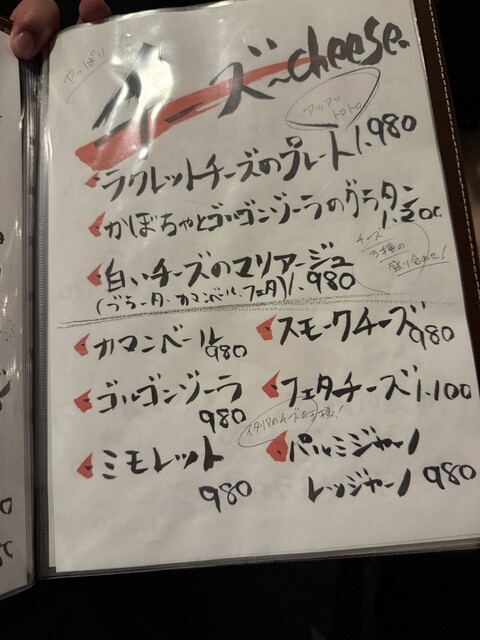 やっぱり!
チーズ~cheese.
アツアツ
トロトロ
ラクレットチーズのプレート 1.980
かぼちゃとゴルゴンゾーラのグラタン
白いチーズのマリアージュ
(ブラータ・カマンベール・フェタ) 1.980
チーズ
3種の
盛り合わせ!
カマンベール 980
スモークチーズ 980
ゴルゴンゾーラ
980
フェタチーズ 1.100
イタリアのチーズの王様!
ミモレット
980
パルミジャーノ
レッジャーノ 980